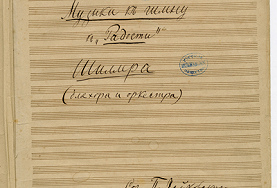 Музыка къ гимну
„Радости"
Шиллера
(для хора и оркестра)
П. Чайковскаго